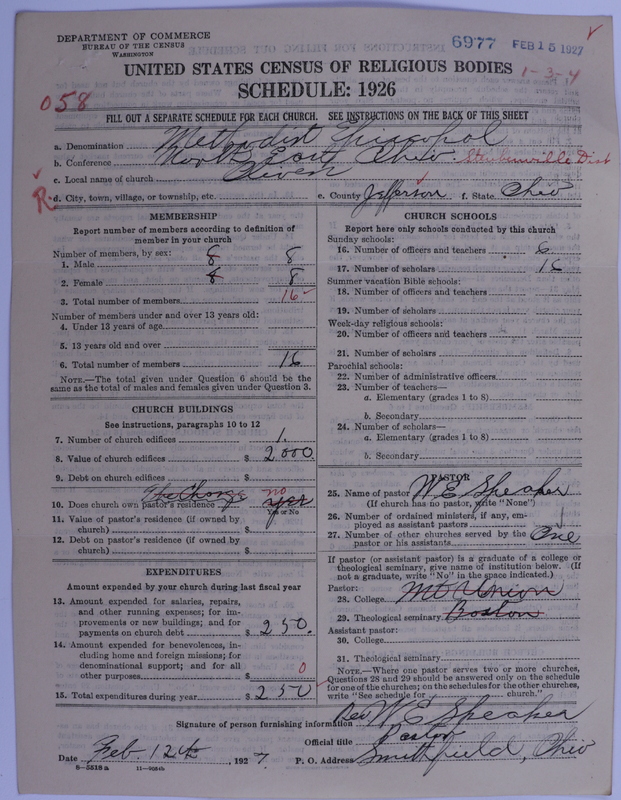 DEPARTMENT OF COMMERCE
BUREAU OF THE CENSUS
WASHINGTON
6977 FEB 15 1927
UNITED STATES CENSUS OF RELIGIOUS BODIES
1-3-4
SCHEDULE: 1926
058
FILL OUT A SEPARATE SCHEDULE FOR EACH CHURCH. SEE INSTRUCTIONS ON THE BACK OF THIS SHEET
a. Denomination Methodist Episcopal
b. Conference North East Ohio. Steubenville Dist
c. Local name of church
R d. City, town, village, or township, etc. e. County Jefferson f. State Ohio
MEMBERSHIP
Report number of members according to definition of member in your church
Number of members, by sex:
1. Male 8 8
2. Female 8 8
3. Total number of members 16
Number of members under and over 13 years old:
4. Under 13 years of age
5. 13 years old and over
6. Total number of members 16
NOTE.—The total given under Question 6 should be the
same as the total of males and females given under Question 3.
CHURCH BUILDINGS
See instructions, paragraphs 10 to 12
7. Number of church edifices 1.
8. Value of church edifices $ 2000.
9. Debt on church edifices $
The Charge no
10. Does church own pastor's residence yes
Yes or No
11. Value of pastor's residence (if owned by
church) $
12. Debt on pastor's residence (if owned by
church) $
EXPENDITURES
Amount expended by your church during last fiscal year
13. Amount expended for salaries, repairs,
and other running expenses; for im-
provements or new buildings; and for
payments on church debt $ 250.
14. Amount expended for benevolences, in-
cluding home and foreign missions; for
denominational support; and for all
other purposes $ 0
15. Total expenditures during year $ 250
CHURCH SCHOOLS
Report here only schools conducted by this church
Sunday schools:
16. Number of officers and teachers 6
17. Number of scholars 16
Summer vacation Bible schools:
18. Number of officers and teachers
19. Number of scholars
Week-day religious schools:
20. Number of officers and teachers
21. Number of scholars
Parochial schools:
22. Number of administrative officers
23. Number of teachers—
a. Elementary (grades 1 to 8)
b. Secondary
24. Number of scholars—
a. Elementary (grades 1 to 8)
b. Secondary
PASTOR
25. Name of pastor W E Speaker
(If church has no pastor, write "None")
26. Number of ordained ministers, if any, em-
ployed as assistant pastors
27. Number of other churches served by the
pastor or his assistants One
If pastor (or assistant pastor) is a graduate of a college or
theological seminary, give name of institution below. (If
not a graduate, write "No" in the space indicated.)
Pastor:
28. College Mt Union
29. Theological seminary Boston
Assistant pastor:
30. College
31. Theological seminary
NOTE.—Where one pastor serves two or more churches,
Questions 28 and 29 should be answered only on the schedule
for one of the churches; on the schedules for the other churches,
write "See schedule for church."
Signature of person furnishing information Rev W E Speaker
Official title Pastor
Date Feb. 12th, 1927 P. O. Address Smithfield, Ohio
8—5518a